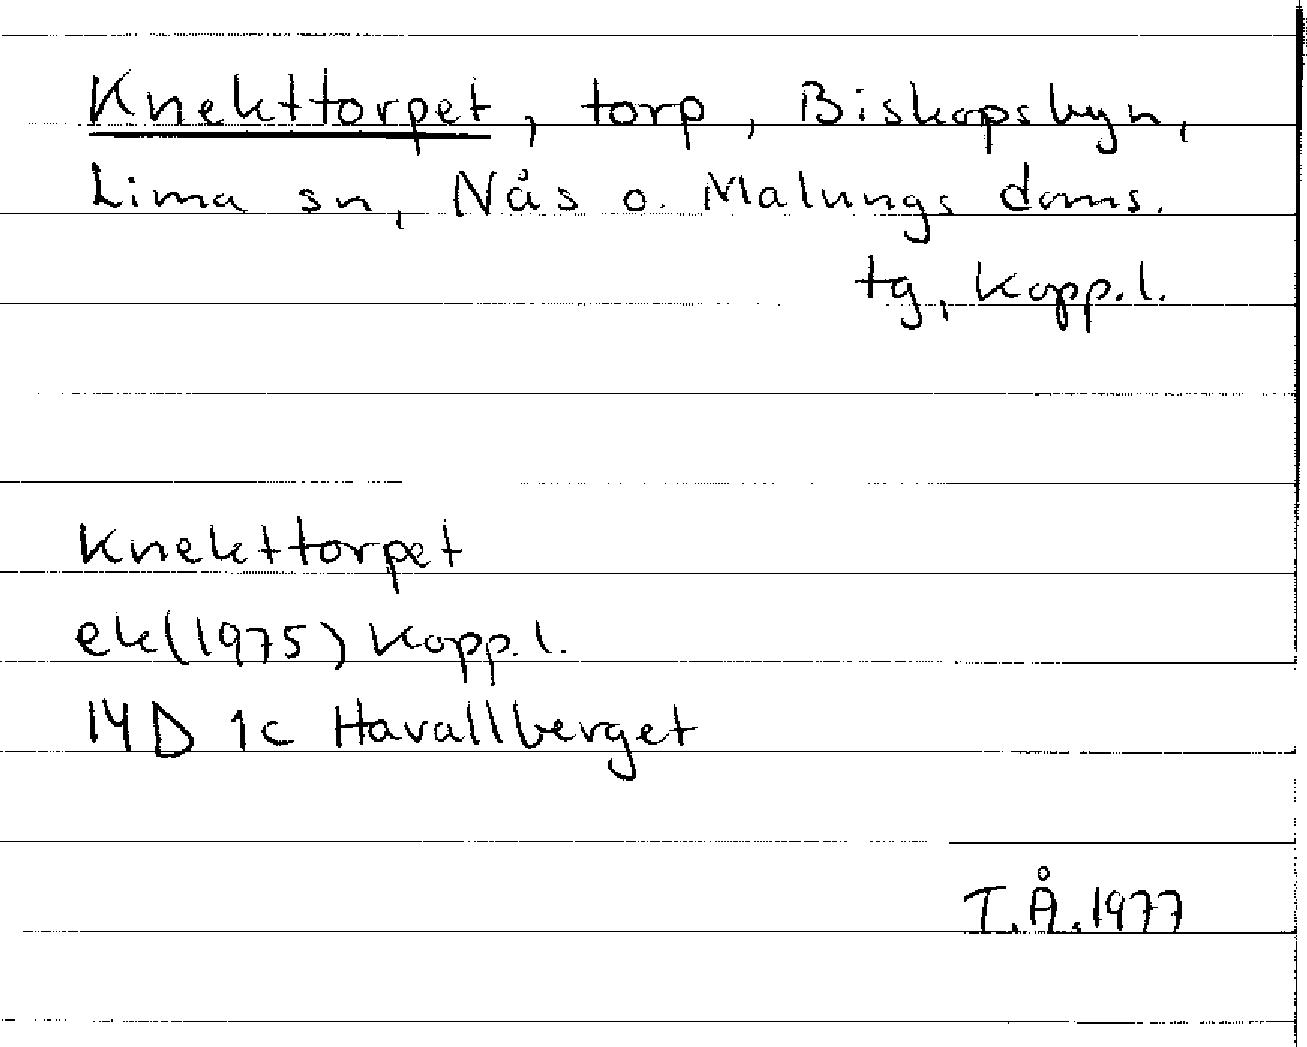 Knekttorpet, torp, Biskopsbyn,
Lima sn, Nås o. Malungs doms.
tg, Kopp.l.
Knekttorpet
ek(1975) Kopp.l.
14D 1c Havallberget
T.Å.1977